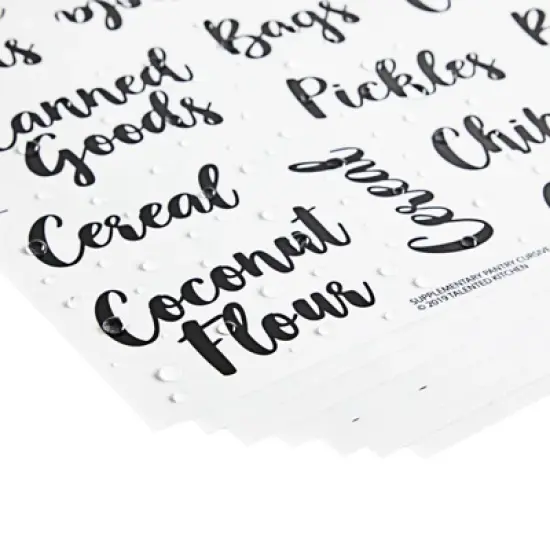 Bags
Pickles
Goods
Cereal
Cereal
Coconut
Flour
SUPPLEMENTARY PANTRY CURSIVE
© 2019 TALENTED KITCHEN